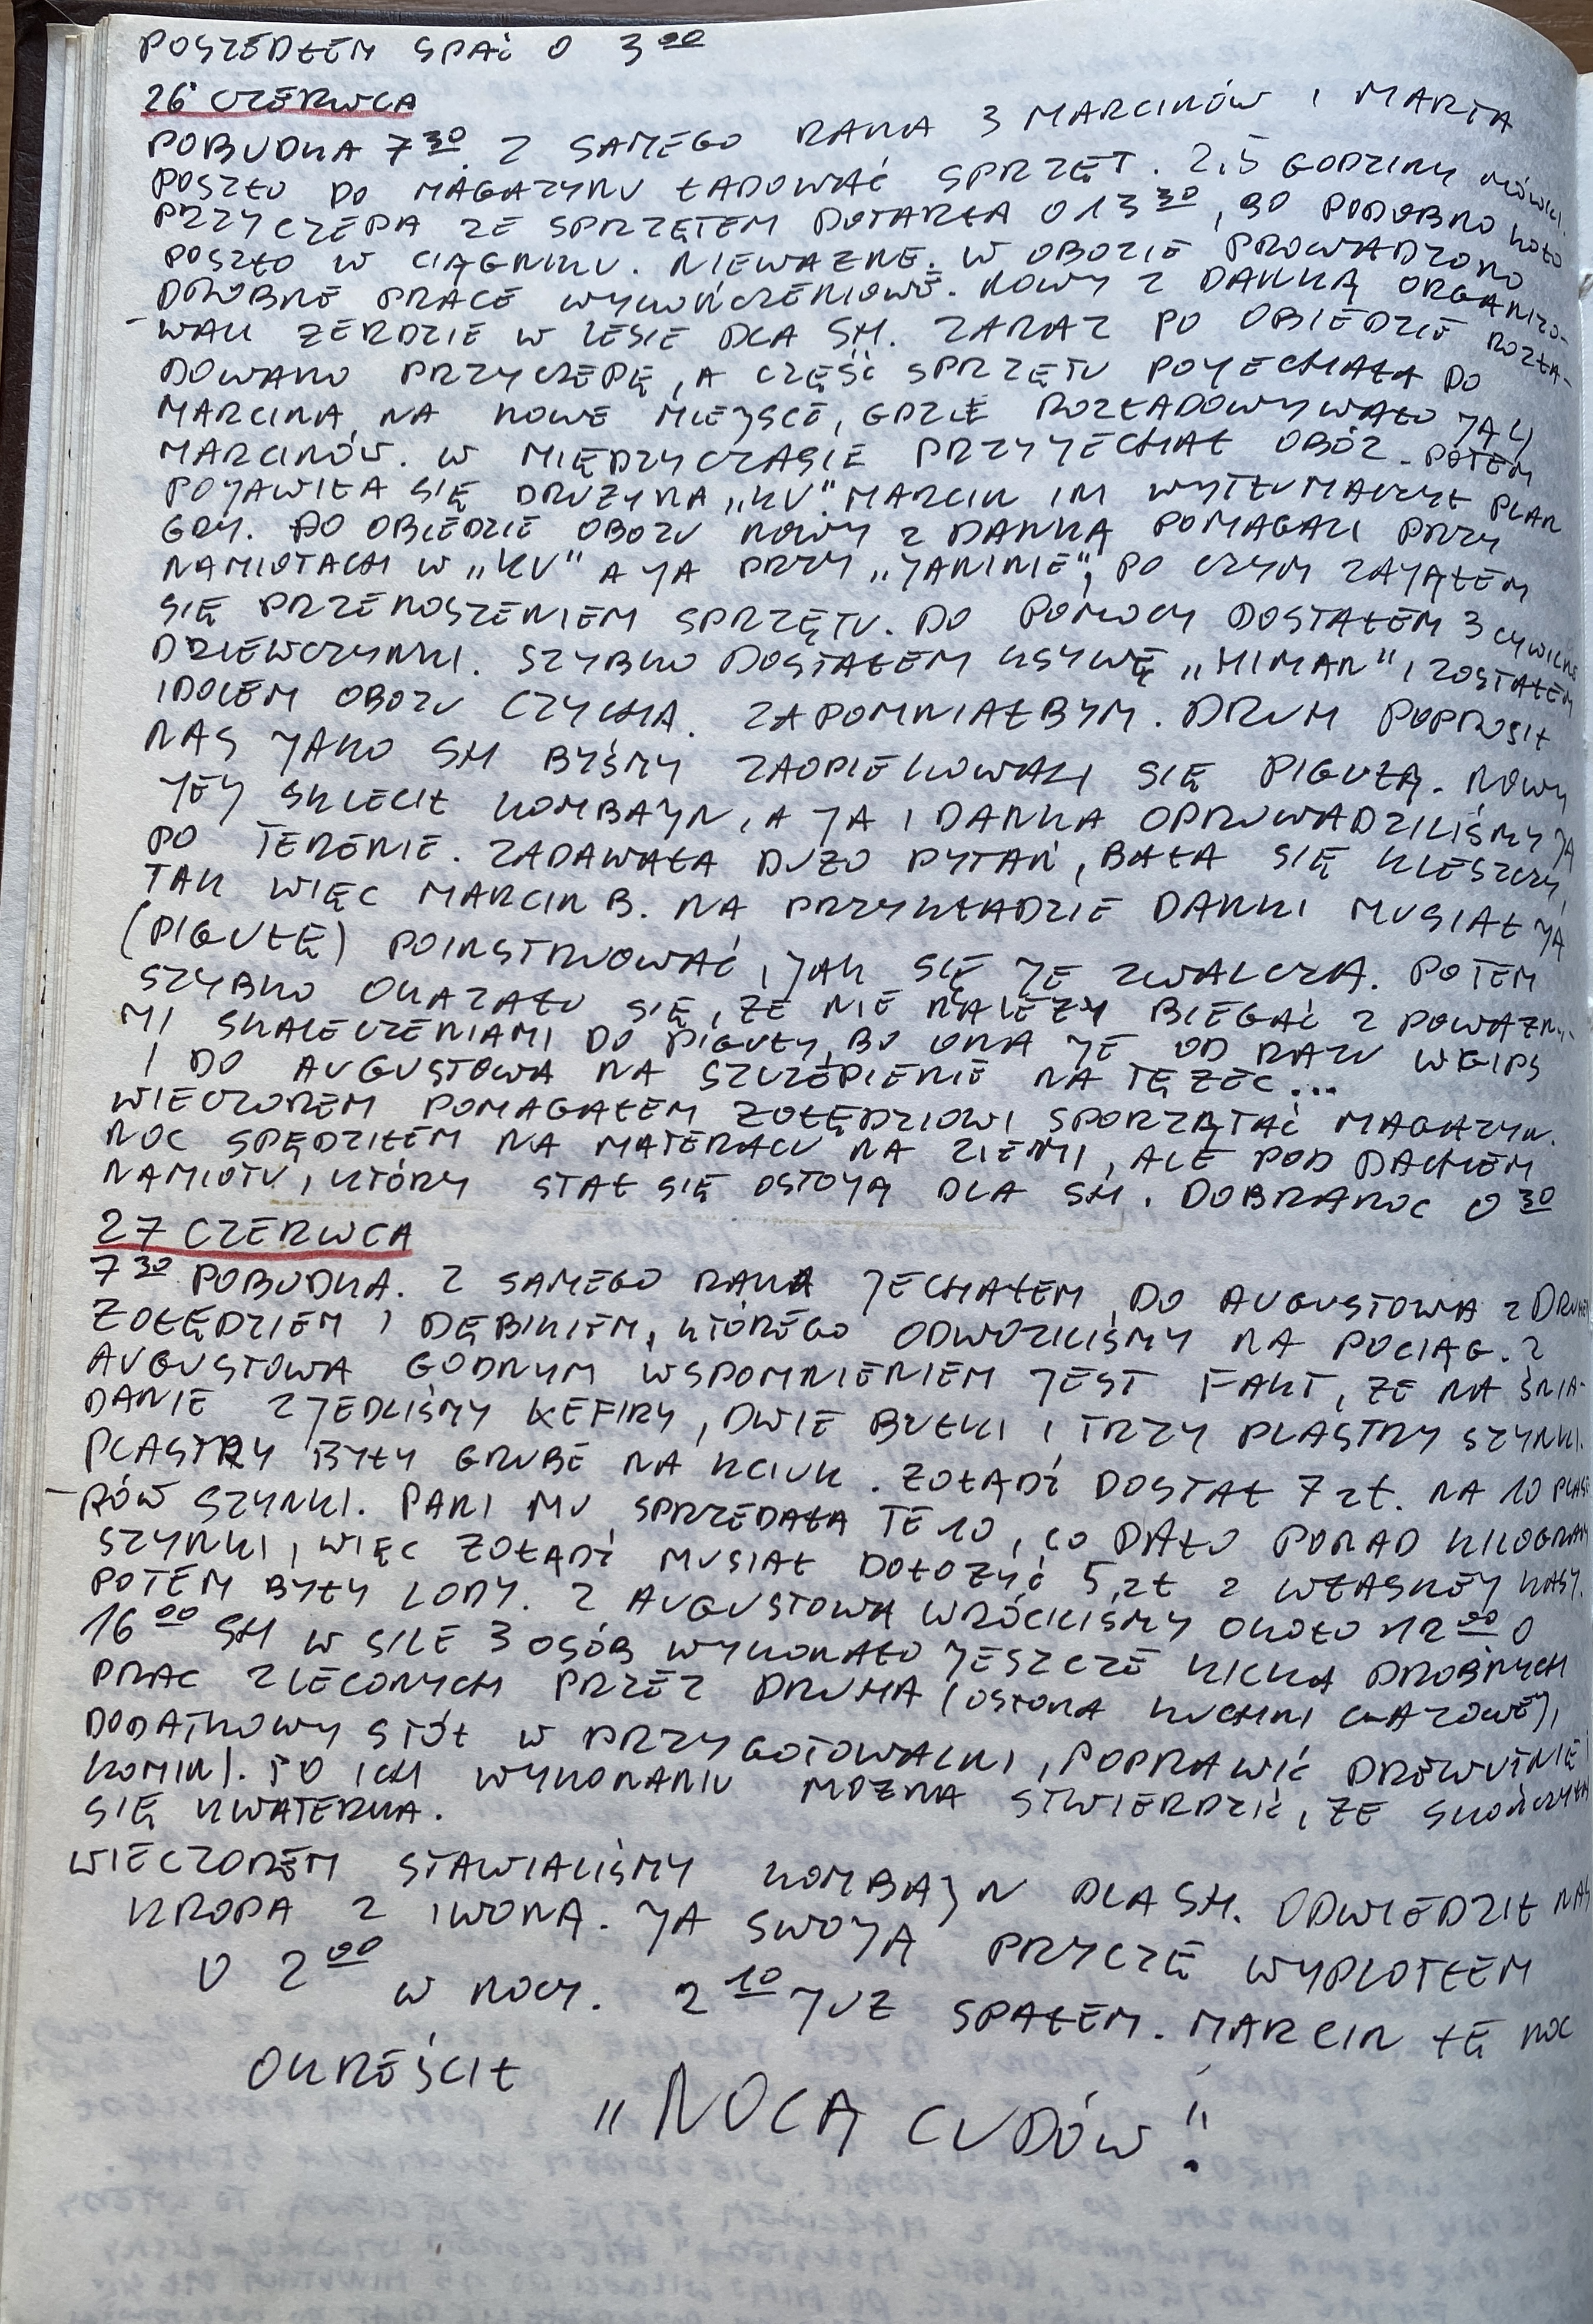 POSZEDŁEM SPAĆ O 3 00
26 CZERWCA
POBUDKA 7 30. Z SAMEGO RANA 3 MARCINÓW I MARTA
POSZŁO DO MAGAZYNU ŁADOWAĆ SPRZĘT. 2,5 GODZINY MÓWILI.
PRZYCZEPA ZE SPRZĘTEM DOTARŁA O 13 30, BO PODOBNO KOŁO
POSZŁO W CIĄGNIKU. NIEWAŻNE. W OBOZIE PROWADZONO
DROBNE PRACE WYKOŃCZENIOWE. NOWY Z DANKĄ ORGANIZO-
-WALI ŻERDZIE W LESIE DLA SH. ZARAZ PO OBIEDZIE ROZŁA-
DOWANO PRZYCZEPĘ, A CZĘŚĆ SPRZĘTU POJECHAŁA DO
MARCINA, NA NOWE MIEJSCE, GDZIE ROZŁADOWYWAŁO JĄ
MARCINÓW. W MIĘDZYCZASIE PRZYJECHAŁ OBÓZ. POTEM
POJAWIŁA SIĘ DRUŻYNA „KV". MARCIN IM WYTŁUMACZYŁ PLAN
GRY. PO OBIEDZIE OBOZU NOWY Z DANKĄ POMAGALI PRZY
NAMIOTACH W „KV" A JA PRZY „JANINIE", PO CZYM ZAJĄŁEM
SIĘ PRZENOSZENIEM SPRZĘTU. DO POMOCY DOSTAŁEM 3 CYWILNE
DZIEWCZYNKI. SZYBKO DOSTAŁEM KSYWĘ „HIMAN" I ZOSTAŁEM
IDOLEM OBOZU CZYCHA. ZAPOMNIAŁBYM. DRUH POPROSIŁ
NAS JAKO SH BYŚMY ZAOPIEKOWALI SIĘ PIGUŁĄ. NOWY
JEJ SKLECIŁ KOMBAJN, A JA I DANKA OPROWADZILIŚMY JĄ
PO TERENIE. ZADAWAŁA DUŻO PYTAŃ, BAŁA SIĘ KLESZCZY,
TAK WIĘC MARCIN B. NA PRZYKŁADZIE DANKI MUSIAŁ JĄ
(PIGUŁĘ) POINSTRUOWAĆ, JAK SIĘ JE ZWALCZA. POTEM
SZYBKO OKAZAŁO SIĘ, ŻE NIE NALEŻY BIEGAĆ Z POWAŻNY-
MI SKALECZENIAMI DO PIGUŁY, BO ONA JE OD RAZU W GIPS
I DO AUGUSTOWA NA SZCZEPIENIE NA TĘŻEC...
WIECZOREM POMAGAŁEM ŻOŁĘDZIOWI SPORZĄTAĆ MAGAZYN.
NOC SPĘDZIŁEM NA MATERACU NA ZIEMI, ALE POD DACHEM
NAMIOTU, KTÓRY STAŁ SIĘ OSTOJĄ DLA SH. DOBRANOC 0 30
27 CZERWCA
7 30 POBUDKA. Z SAMEGO RANA JECHAŁEM DO AUGUSTOWA Z DRUHEM
ŻOŁĘDZIEM I DĘBIKIEM, KTÓREGO ODWOZILIŚMY NA POCIĄG. Z
AUGUSTOWA GODNYM WSPOMNIENIEM JEST FAKT, ŻE NA ŚNIA-
DANIE ZJEDLIŚMY KEFIRY, DWIE BUŁKI I TRZY PLASTRY SZYNKI.
PLASTRY BYŁY GRUBE NA KCIUK. ŻOŁĄDŹ DOSTAŁ 7 ZŁ. NA 10 PLAST
-RÓW SZYNKI. PANI MU SPRZEDAŁA TE 10, CO DAŁO PONAD KILOGRAM
SZYNKI, WIĘC ŻOŁĄDŹ MUSIAŁ DOŁOŻYĆ 5 ZŁ Z WŁASNEJ KASY.
POTEM BYŁY LODY. Z AUGUSTOWA WRÓCILIŚMY OKOŁO 12 00 O
16 00 SH W SILE 3 OSÓB WYKONAŁO JESZCZE KILKA DROBNYCH
PRAC ZLECONYCH PRZEZ DRUHA (OSŁONA KUCHNI GAZOWEJ,
DODATKOWY STÓŁ W PRZYGOTOWALNI, POPRAWIĆ DREWUTNIĘ I
KOMIN). PO ICH WYKONANIU MOŻNA STWIERDZIĆ, ŻE SKOŃCZYŁA
SIĘ KWATERKA.
WIECZOREM STAWIALIŚMY KOMBAJN DLA SH. ODWIEDZIŁ NAS
KROPA Z IWONĄ. JA SWOJĄ PRYCZĘ WYPLOTŁEM
O 2 00 W NOCY. 2 10 JUŻ SPAŁEM. MARCIN TĘ NOC
OKREŚLIŁ
„NOCĄ CUDÓW"!